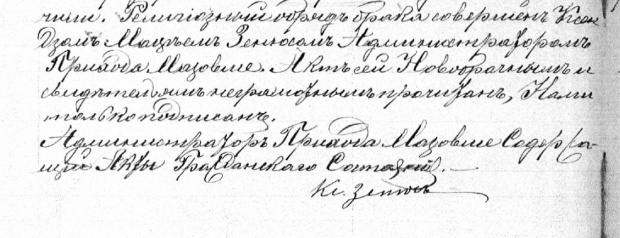 чими. Религіозный обрядъ брака совершен Ксен
дзомъ Мацѣемъ Зенюсомъ Администраторомъ
Прихода Мазовше. Актъ сей Новобрачнымъ и
свидѣтелямъ неграмотнымъ прочитанъ, Нами
только подписанъ.
Администраторъ Прихода Мазовше Содержа-
щій Акты Гражданскаго Состоянія.
Кс. Зенюсъ